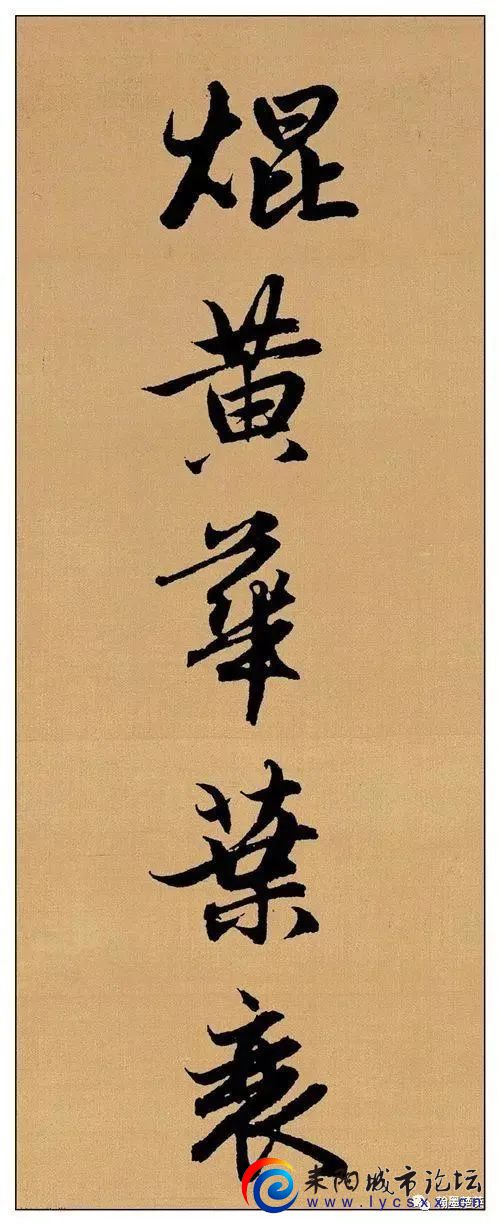 焜
黄
華
葉
衰
耒阳城市论坛
www.lycsxx.com